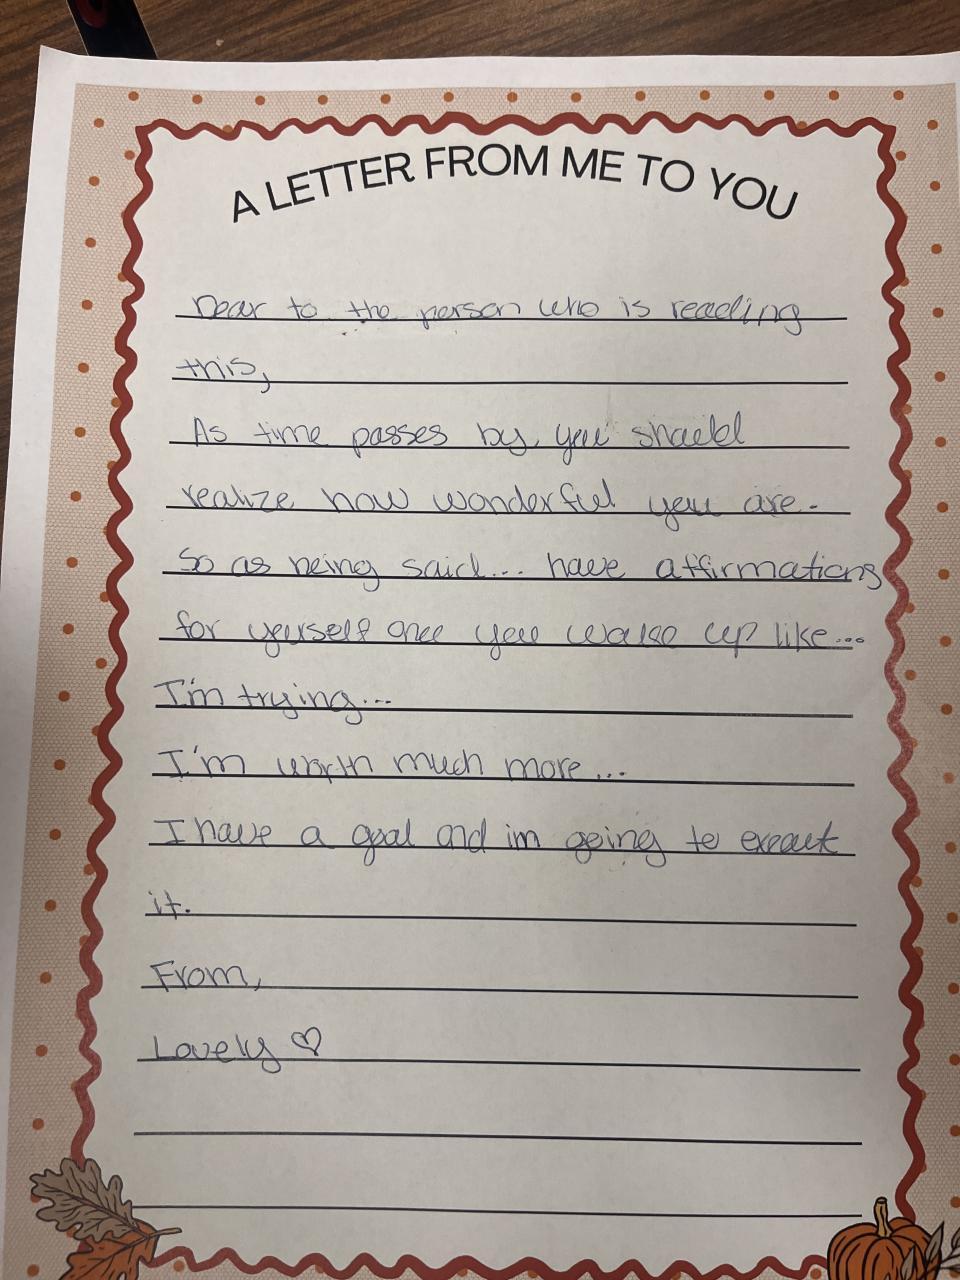 A LETTER FROM ME TO YOU
Dear to the person who is reading
this,
As time passes by you should
realize how wonderful you are.
So as being said... have affirmations
for yourself once you wake up like...
I'm trying...
I'm worth much more...
I have a goal and im going to
it.
From,
Lovely ♡